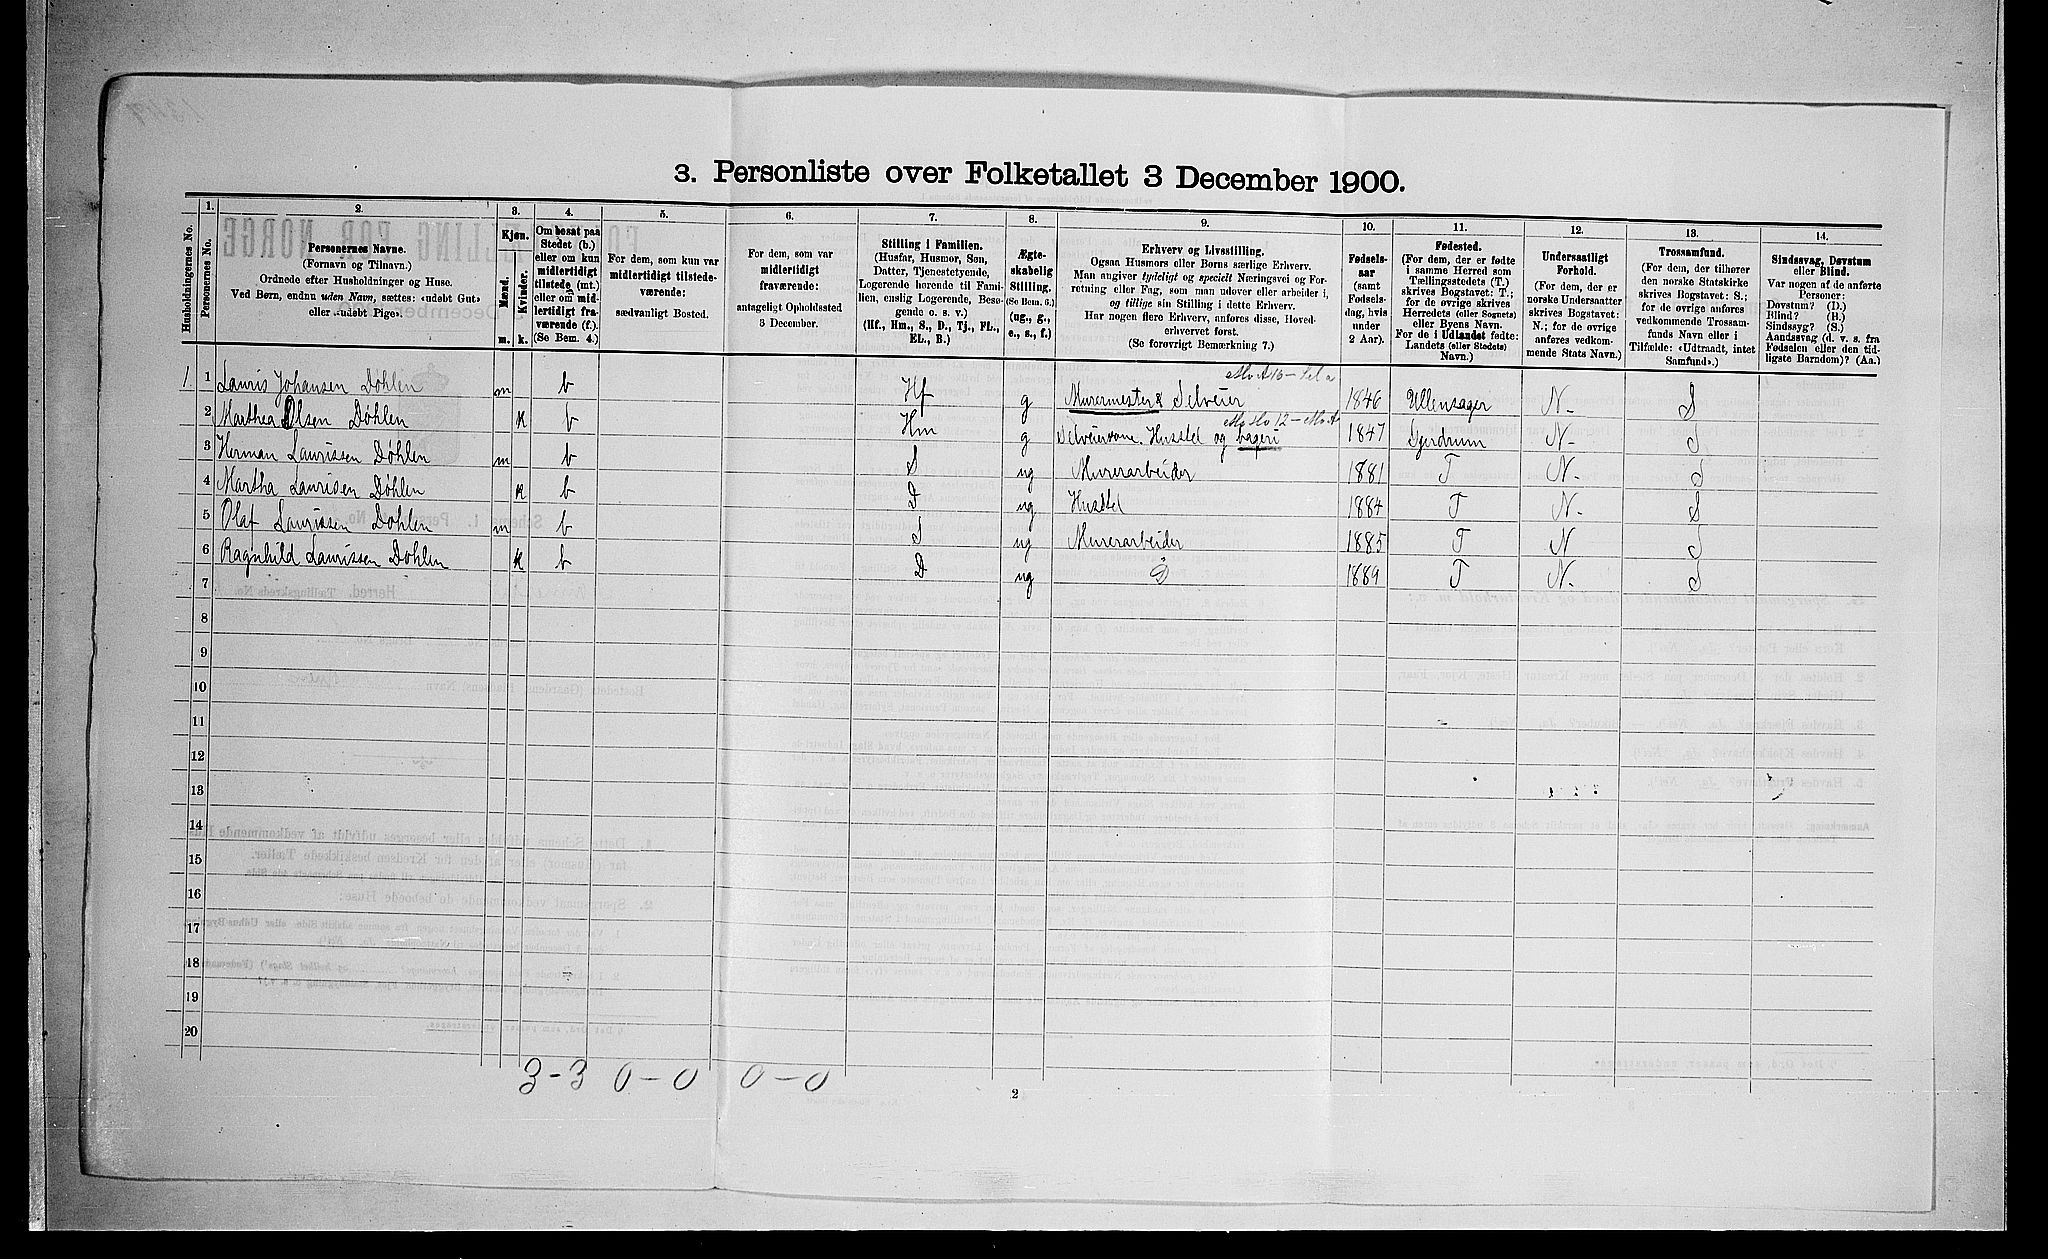 3. Personliste over Folketallet 3 December 1900.
Husholdningernes No.
1.
Personernes No.
2.
Personernes Navne.
(Fornavn og Tilnavn.)
Ordnede efter Husholdninger og Huse.
Ved Børn, endnu uden Navn, sættes: «udøbt Gut»
eller «udøbt Pige».
3.
Kjøn.
Mænd.
Kvinder.
m.
k.
4.
Om bosat paa
Stedet (b.)
eller om kun
midlertidigt
tilstede (mt.)
eller om mid-
lertidigt fra-
værende (f.).
(Se Bem. 4.)
5.
For dem, som kun var
midlertidigt tilstede-
værende:
sædvanligt Bosted.
6.
For dem, som var
midlertidigt
fraværende:
antageligt Opholdssted
3 December.
7.
Stilling i Familien.
(Husfar, Husmor, Søn,
Datter, Tjenestetyende,
Logerende hørende til Fami-
lien, enslig Logerende, Besø-
gende o. s. v.)
(Hf., Hm., S., D., Tj., FL.,
EL., B.)
8.
Ægte-
skabelig
Stilling.
(Se Bem. 6.)
(ug., g.,
e., s., f.)
9.
Erhverv og Livsstilling.
Ogsaa Husmors eller Børns særlige Erhverv.
Man angiver tydeligt og specielt Næringsvei og For-
retning eller Fag, som man udøver eller arbeider i,
og tillige sin Stilling i dette Erhverv.
Har nogen flere Erhverv, anføres disse, Hoved-
erhvervet først.
(Se forøvrigt Bemærkning 7.)
10.
Fødsels-
aar
(samt
Fødsels-
dag, hvis
under
2 Aar).
11.
Fødested.
(For dem, der er fødte
i samme Herred som
Tællingsstedets (T.)
skrives Bogstavet: T.;
for de øvrige skrives
Herredets (eller Sognets)
eller Byens Navn.
For de i Udlandet fødte:
Landets (eller Stedets)
Navn.)
12.
Undersaatligt
Forhold.
(For dem, der er
norske Undersaatter
skrives Bogstavet:
N.; for de øvrige
anføres vedkom-
mende Stats Navn.)
13.
Trossamfund.
(For dem, der tilhører
den norske Statskirke
skrives Bogstavet: S.;
for de øvrige anføres
vedkommende Trossam-
funds Navn eller i
Tilfælde: «Udtraadt, intet
Samfund».)
14.
Sindssvag, Døvstum
eller Blind.
Var nogen af de anførte
Personer:
Døvstum? (D.)
Blind? (B.)
Sindssyg? (S.)
Aandssvag (d. v. s. fra
Fødselen eller den tid-
ligste Barndom)? (Aa.)
1. 1 Lauris Johansen Døhlen m b Hf g Murermester & Selveier 1846 Ullensager N. S
2 Marthea Olsen Døhlen k b Hm g Selveierkone. Husstel og bageri 1847 Gjerdrum N. S
3 Herman Laurissen Døhlen m b S ug Murerarbeider 1881 T N. S
4 Martha Laurisen Døhlen k b D ug Husstel 1884 T N. S
5 Olaf Laurissen Døhlen m b S ug Murerarbeider 1885 T N S
6 Ragnhild Laurissen Døhlen k b D ug D 1889 T N. S
7
8
9
10
11
12
13
14
15
16
17
18
19
20
3-3 0-0 0-0
2